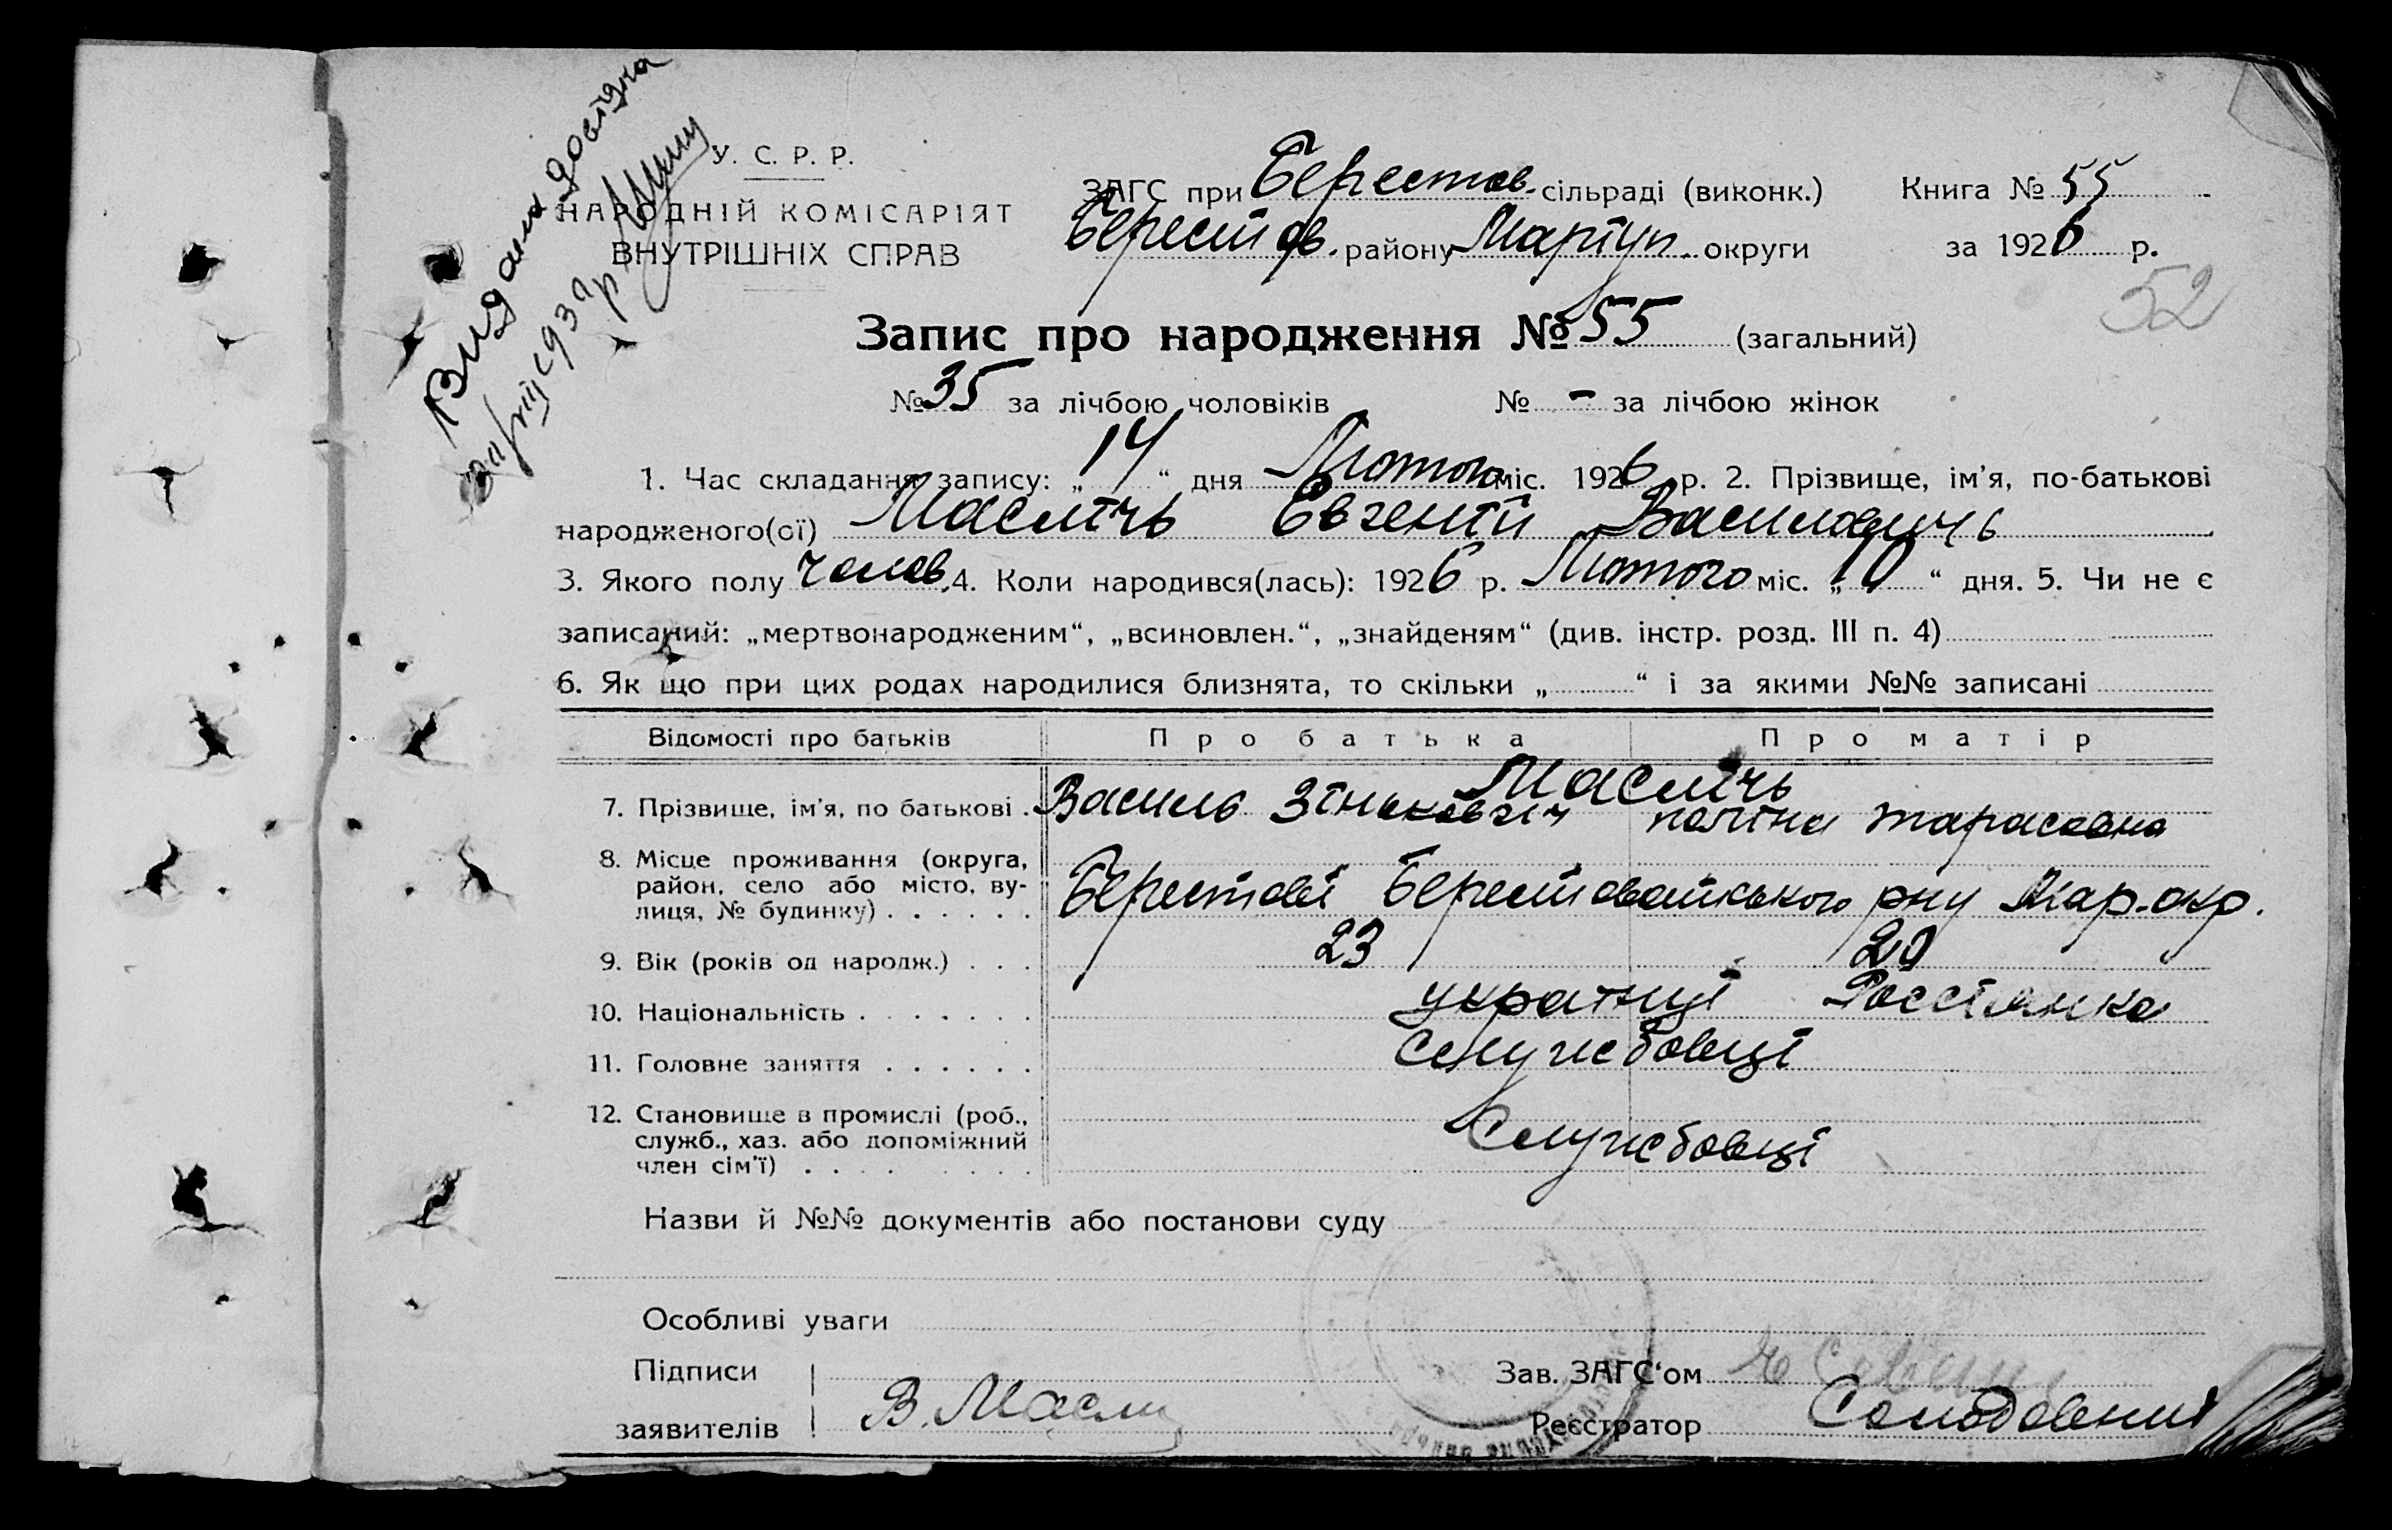 Видана довідка
193 р
У. С. Р. Р.
НАРОДНІЙ КОМІСАРІЯТ
ВНУТРІШНІХ СПРАВ
ЗАГС при Берестов. сільраді (виконк.) Книга № 55
Берестов. району Маріуп. округи за 1926 р.
52
Запис про народження № 55 (загальний)
№ 35 за лічбою чоловіків № - за лічбою жінок
1. Час складання запису: „ 14 “ дня Лютого міс. 1926 р. 2. Прізвище, ім’я, по-батькові
народженого(ої) Маслічь Євгеній Василовичь
3. Якого полу чолов. 4. Коли народився(лась): 1926 р. Лютого міс. „ 10 “ дня. 5. Чи не є
записаний: „мертвонародженим“, „всиновлен.“, „знайденям“ (див. інстр. розд. III п. 4)
6. Як що при цих родах народилися близнята, то скільки „ “ і за якими №№ записані
Відомості про батьків Про батька Про матір
Маслічь
7. Прізвище, ім’я, по батькові . Василь Зіньковвіч поліна тарасовна
8. Місце проживання (округа,
район, село або місто, ву-
лиця, № будинку) . . . . . . Берестові Берестоватського рну Мар. окр.
9. Вік (років од народж.) . . . 23 20
10. Національність . . . . . . . українці Россіянка
11. Головне заняття . . . . . . Службовці
12. Становище в промислі (роб.,
служб., хаз. або допоміжний
член сім’ї) . . . . . . . . Службовці
Назви й №№ документів або постанови суду
Особливі уваги
Підписи Зав. ЗАГС‘ом
заявителів В. Масліч Реєстратор